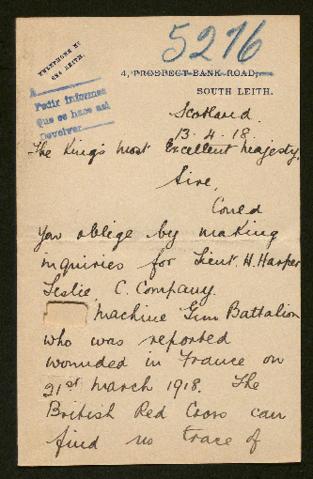 5276
TELEPHONE NO
LEITH.
4, PROSPECT BANK ROAD,
SOUTH LEITH.
Pedir informes
que se hace así
Devolver
Scotland.
13.4.18.
The King's Most Excellent Majesty,
Sire,
Could
you oblige by making
inquiries for Lieut H. Harper
Leslie, C. Company.
Machine Gun Battalion
who was reported
wounded in France on
21st March 1918. The
British Red Cross can
find no trace of